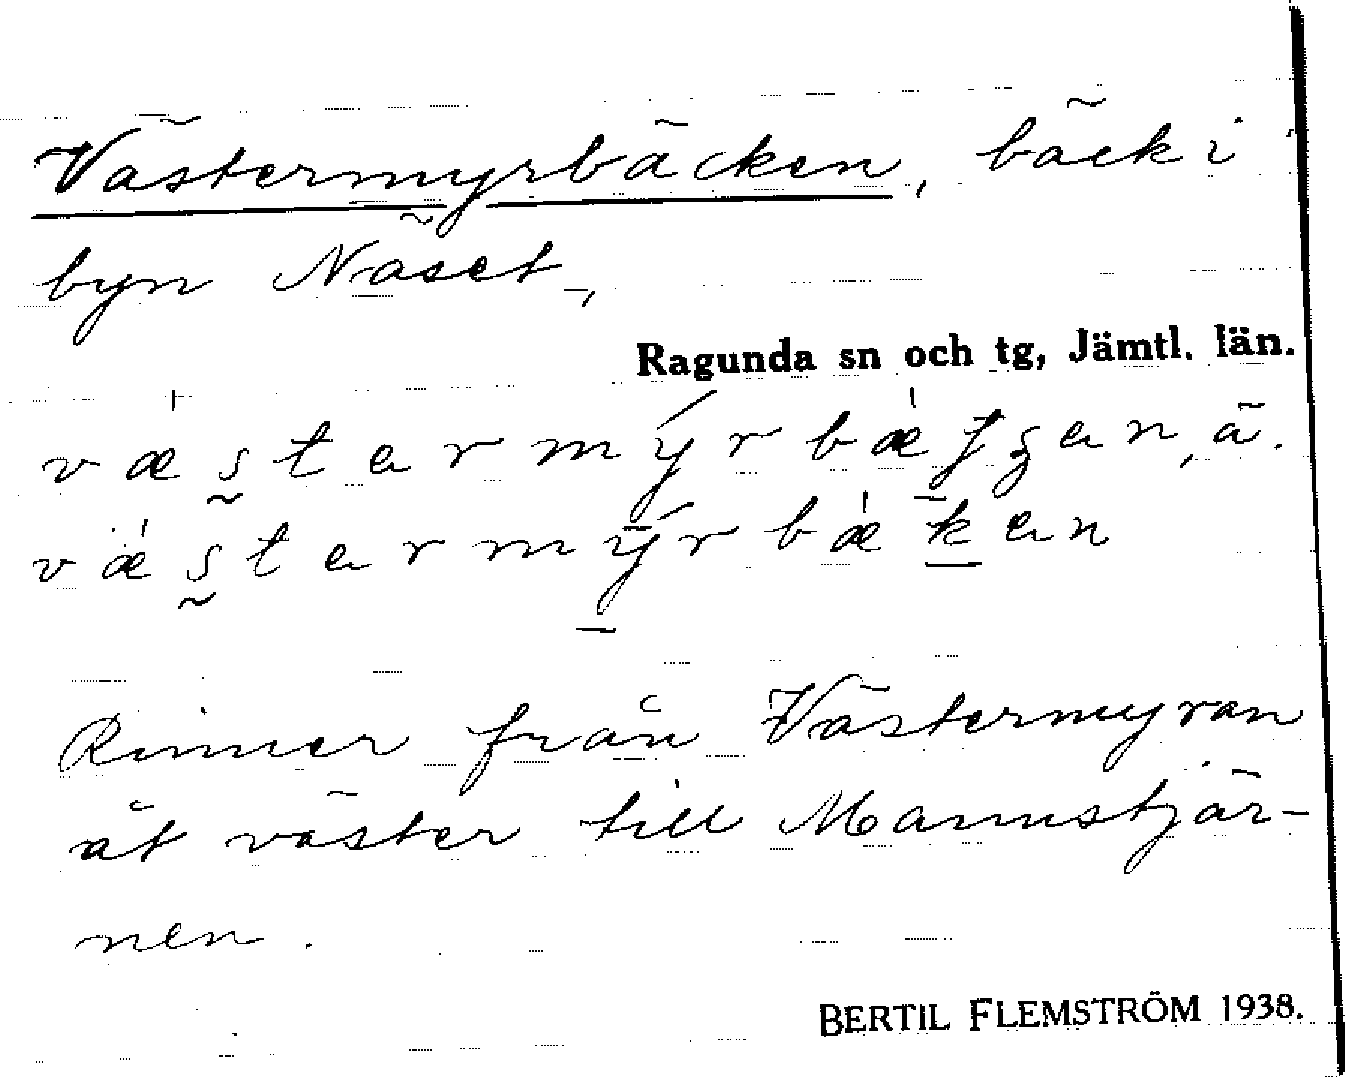 Västermyrbäcken, bäck i
byn Näset,
Ragunda sn och tg, Jämtl. län.
ä.
Rinner från Västermyran
åt väster till Mannstjär-
nen.
BERTIL FLEMSTRÖM 1938.